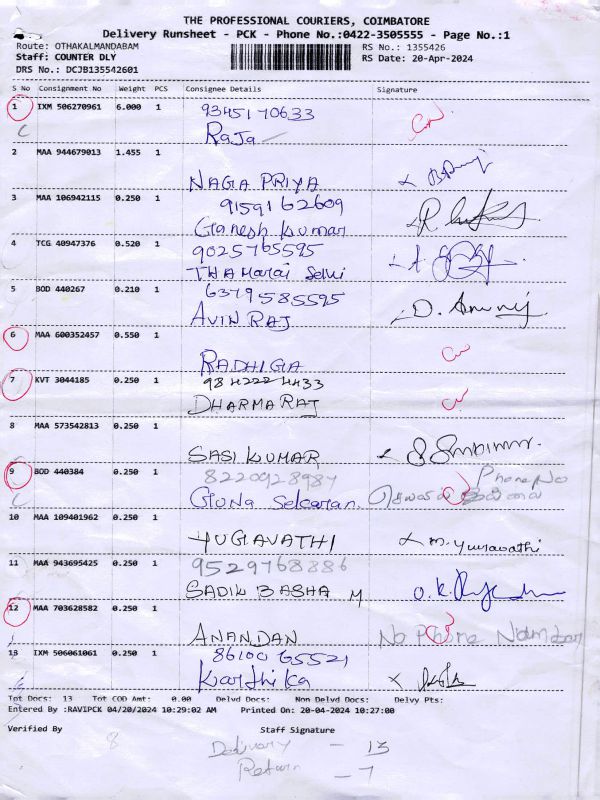 THE PROFESSIONAL COURIERS, COIMBATORE
Delivery Runsheet - PCK - Phone No.:0422-3505555 - Page No.:1
Route: OTHAKALMANDABAM
RS No.: 1355426
Staff: COUNTER DLY
RS Date: 20-Apr-2024
DRS No.: DCJB135542601
S No Consignment No Weight PCS Consignee Details Signature
1 IXM 506270961 6.000 1 9345170633
Raja
2 MAA 944679013 1.455 1
NAGA PRIYA
3 MAA 106942115 0.250 1 9159162609
Ganesh Kumar
4 TCG 40947376 0.520 1 9025765595
THAMarai Selvi
5 BOD 440267 0.210 1 6379585595
AVIN RAJ
6 MAA 600352457 0.550 1
RADHIGA
7 KVT 3044185 0.250 1 984222 4433
DHARMARAJ
8 MAA 573542813 0.250 1
SASI KUMAR
9 BOD 440384 0.250 1 8220928987 Phone No
Guna Sekaran
10 MAA 109401962 0.250 1
YUGAVATHI M. Yugavathi
11 MAA 943695425 0.250 1 9529768886
SADIK BASHA M
12 MAA 703628582 0.250 1
ANANDAN No Phone Number
13 IXM 506061061 0.250 1 8610065521
Karthika
Tot Docs: 13 Tot COD Amt: 0.00 Delvd Docs: Non Delvd Docs: Delvy Pts:
Entered By :RAVIPCK 04/20/2024 10:29:02 AM Printed On: 20-04-2024 10:27:00
Verified By Staff Signature
8
Delivery - 13
Return - 7